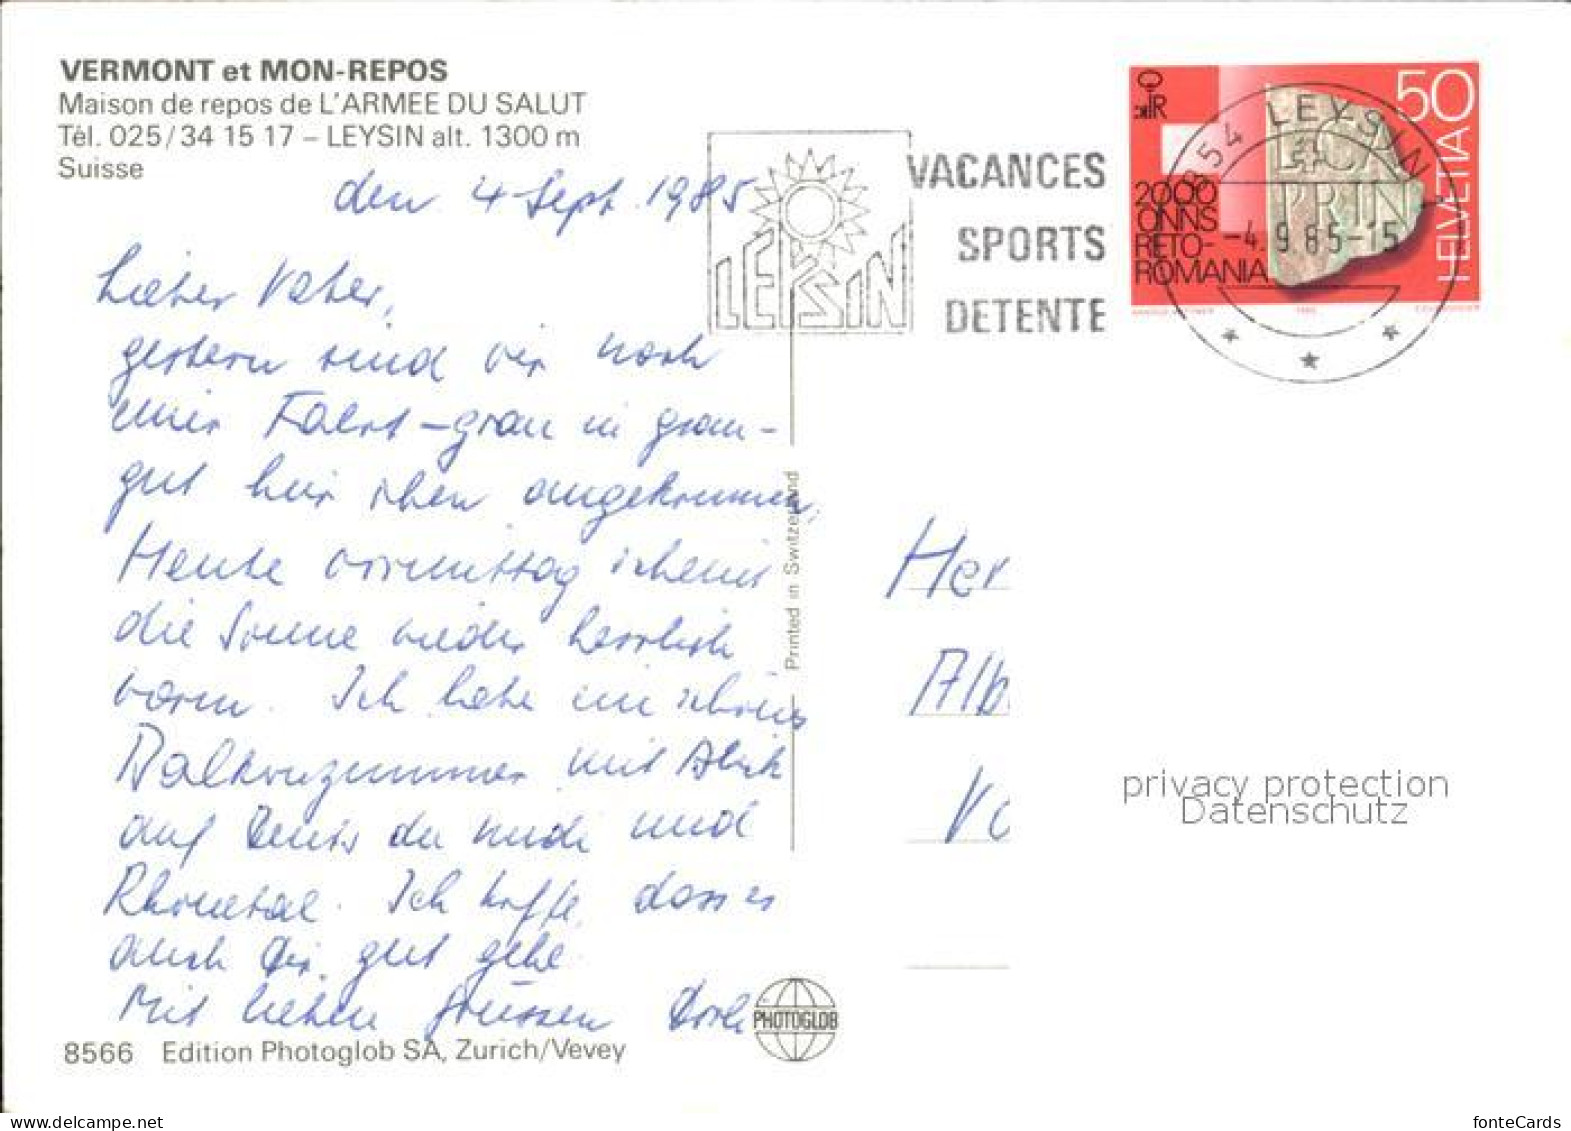 VERMONT et MON-REPOS
Maison de repos de L'ARMEE DU SALUT
Tél. 025/34 15 17 – LEYSIN alt. 1300 m
Suisse
den 4 Sept. 1985
Lieber Vater,
gestern sind wir nach
einer Fahrt – grau in grau –
gut hier oben angekommen,
Heute vormittag scheint
die Sonne wieder herrlich
warm. Ich habe ein schönes
Balkonzimmer mit Blick
auf Dents du midi und
Rhonetal. Ich hoffe, dass es
auch Dir gut gehe.
Mit lieben Grüssen
8566 Edition Photoglob SA, Zurich/Vevey
PHOTOGLOB
Printed in Switzerland
LEYSIN
VACANCES
SPORTS
DETENTE
50
HELVETIA
2000
ONNS
RETO-
ROMANIA
1854 LEYSIN
-4.9.85-15
Her
Alb
Vo
privacy protection
Datenschutz
fonteCards